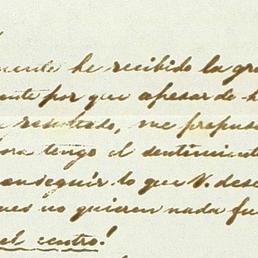 mente he recibido la gra
nte por que apesar de h
resultado, me propuse
na tengo el sentimient
onseguir lo que V. dese
ues no quieren nada fu
el centro!